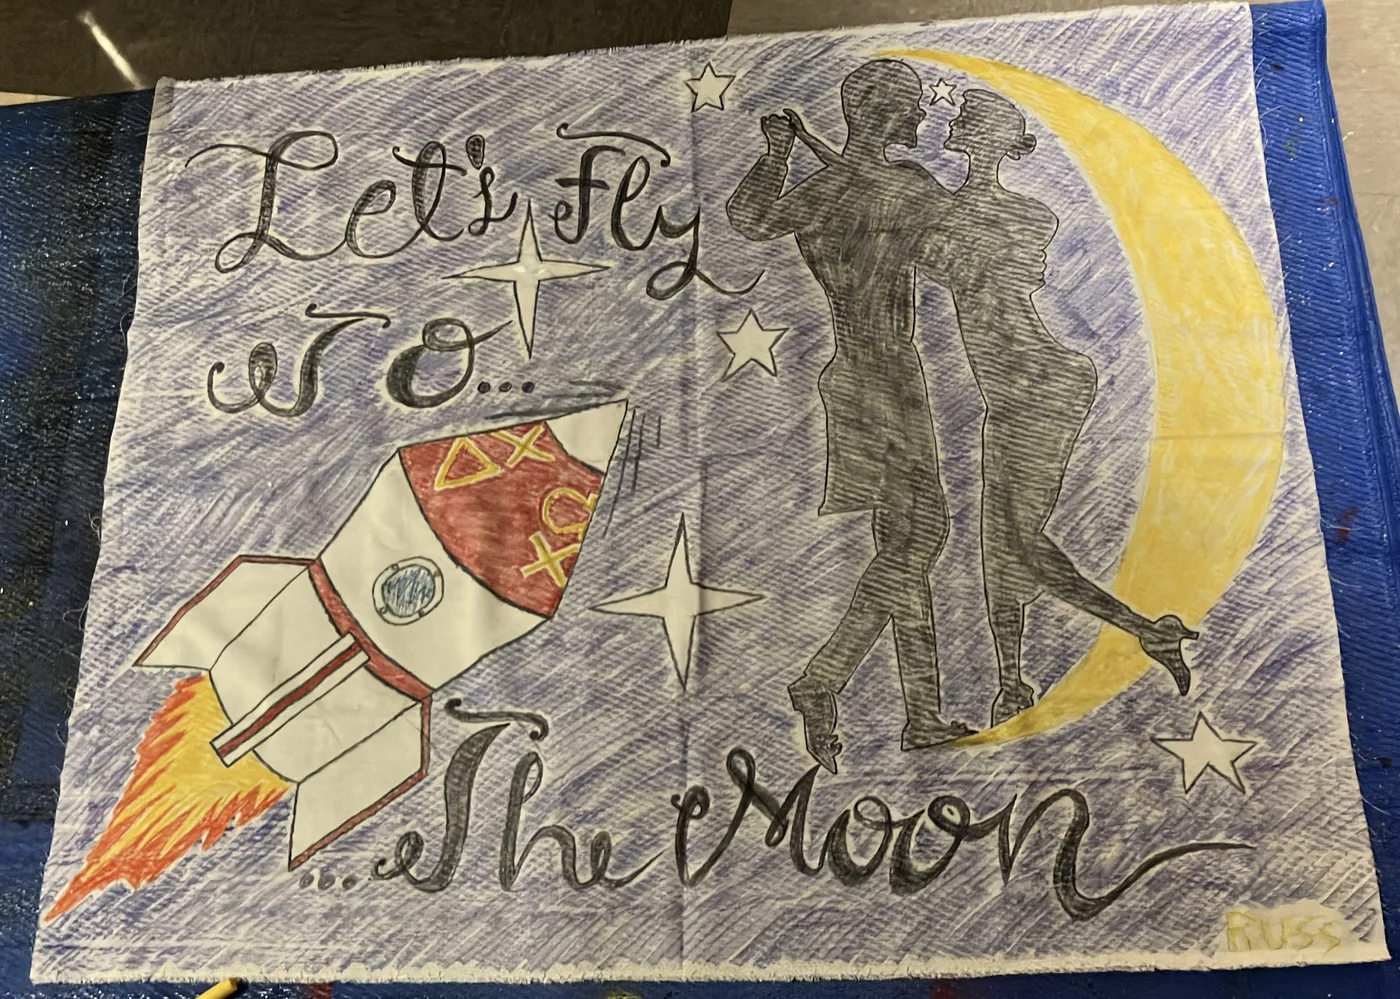 Let's Fly
To...
ΔX
XΩX
...The Moon
Russ